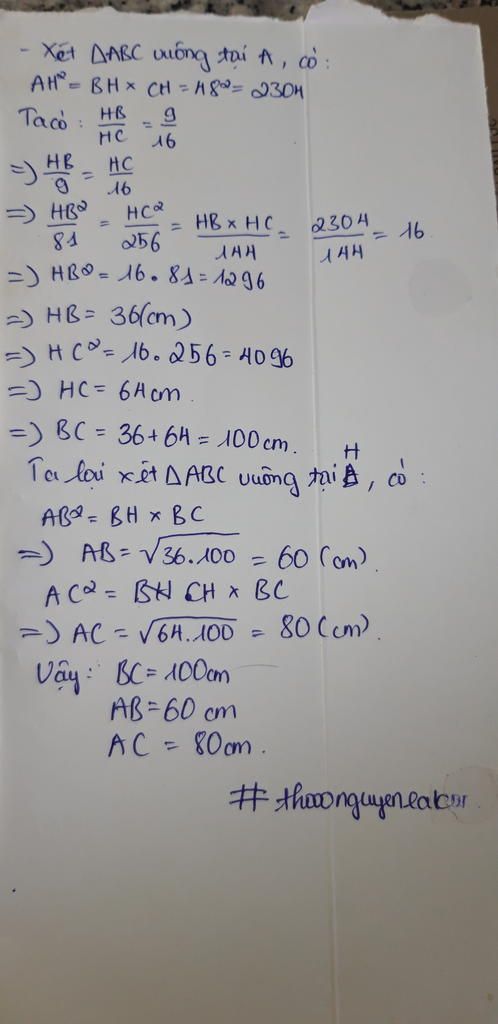 - Xét ΔABC vuông tại A, có:
AH² = BH × CH = 48² = 2304
Ta có: HB/HC = 9/16
=> HB/9 = HC/16
=> HB²/81 = HC²/256 = HB × HC/144 = 2304/144 = 16
=> HB² = 16.81 = 1296
=> HB = 36(cm)
=> HC² = 16.256 = 4096
=> HC = 64cm.
=> BC = 36+64 = 100cm.
Ta lại xét ΔABC vuông tại H, có:
AB² = BH × BC
=> AB = √36.100 = 60 (cm).
AC² = CH × BC
=> AC = √64.100 = 80 (cm).
Vậy: BC = 100cm
AB = 60 cm
AC = 80cm.